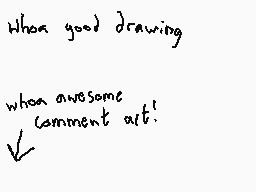 Whoa good drawing
whoa awesome
comment art!